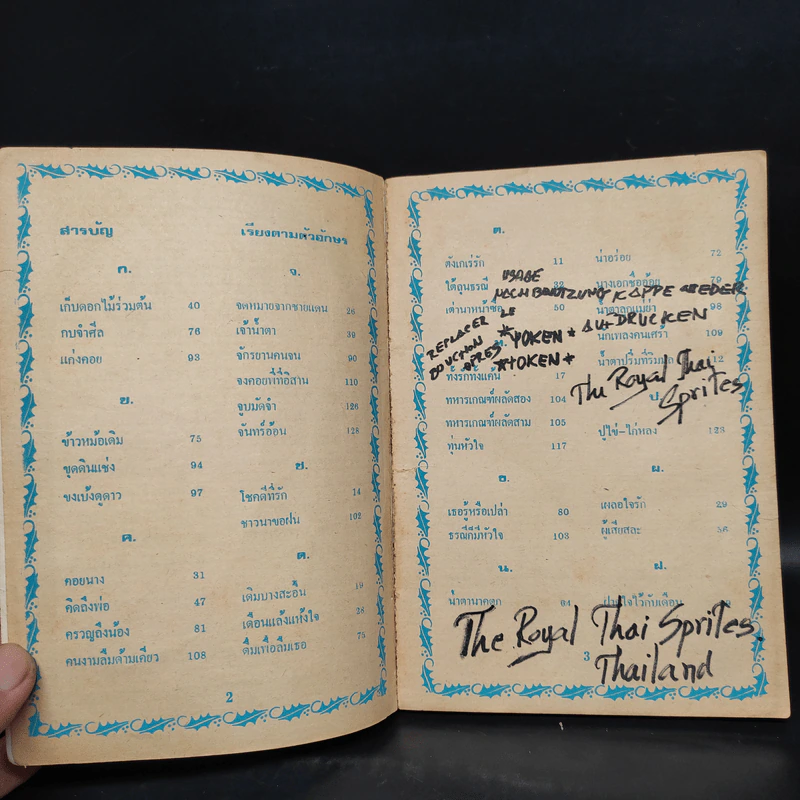 สารบัญ เรียงตามตัวอักษร
ก.
เก็บดอกไม้ร่วมต้น 40
กบจำศีล 76
แก่งคอย 93
ข.
ข้าวหม้อเดิม 75
ขุดดินแช่ง 94
ขงเบ้งดูดาว 97
ค.
คอยนาง 31
คิดถึงพ่อ 47
ครวญถึงน้อง 81
คนงามลืมด้ามเคียว 108
จ.
จดหมายจากชายแดน 26
เจ้าน้ำตา 39
จักรยานคนจน 90
จงคอยพี่ที่อิสาน 110
จูบมัดจำ 126
จันทร์อ้อน 128
ช.
โชคดีที่รัก 14
ชาวนาขอฝน 102
ด.
เดิมบางสะอื้น 19
เดือนแล้งแห้งใจ 28
ดื่มเพื่อลืมเธอ 75
2
ต.
ตังเกเร่รัก 11
ใต้ถุนธรณี 32
เต่านาหน้าซื่อ
USAGE
REPLACER
YOKEN
DRUCKEN
*TOKEN*
ทหารเกณฑ์ผลัดสอง 104
ทหารเกณฑ์ผลัดสาม 105
ทุ่นหัวใจ 117
ธ.
เธอรู้หรือเปล่า 80
ธรณีก็มีหัวใจ 103
น.
น้ำตานาคตก 94
น่าอร่อย 72
นางเอกชื่ออ้อย 79
น้ำตาลูกแม่ย่า 98
นักเพลงคนเศร้า 109
The Royal Thai
Sprites
ป.
ปูไข่-ไก่หลง 123
ผ.
เผลอใจรัก 29
ผู้เสียสละ 56
ฝ.
The Royal Thai Sprites.
Thailand
3